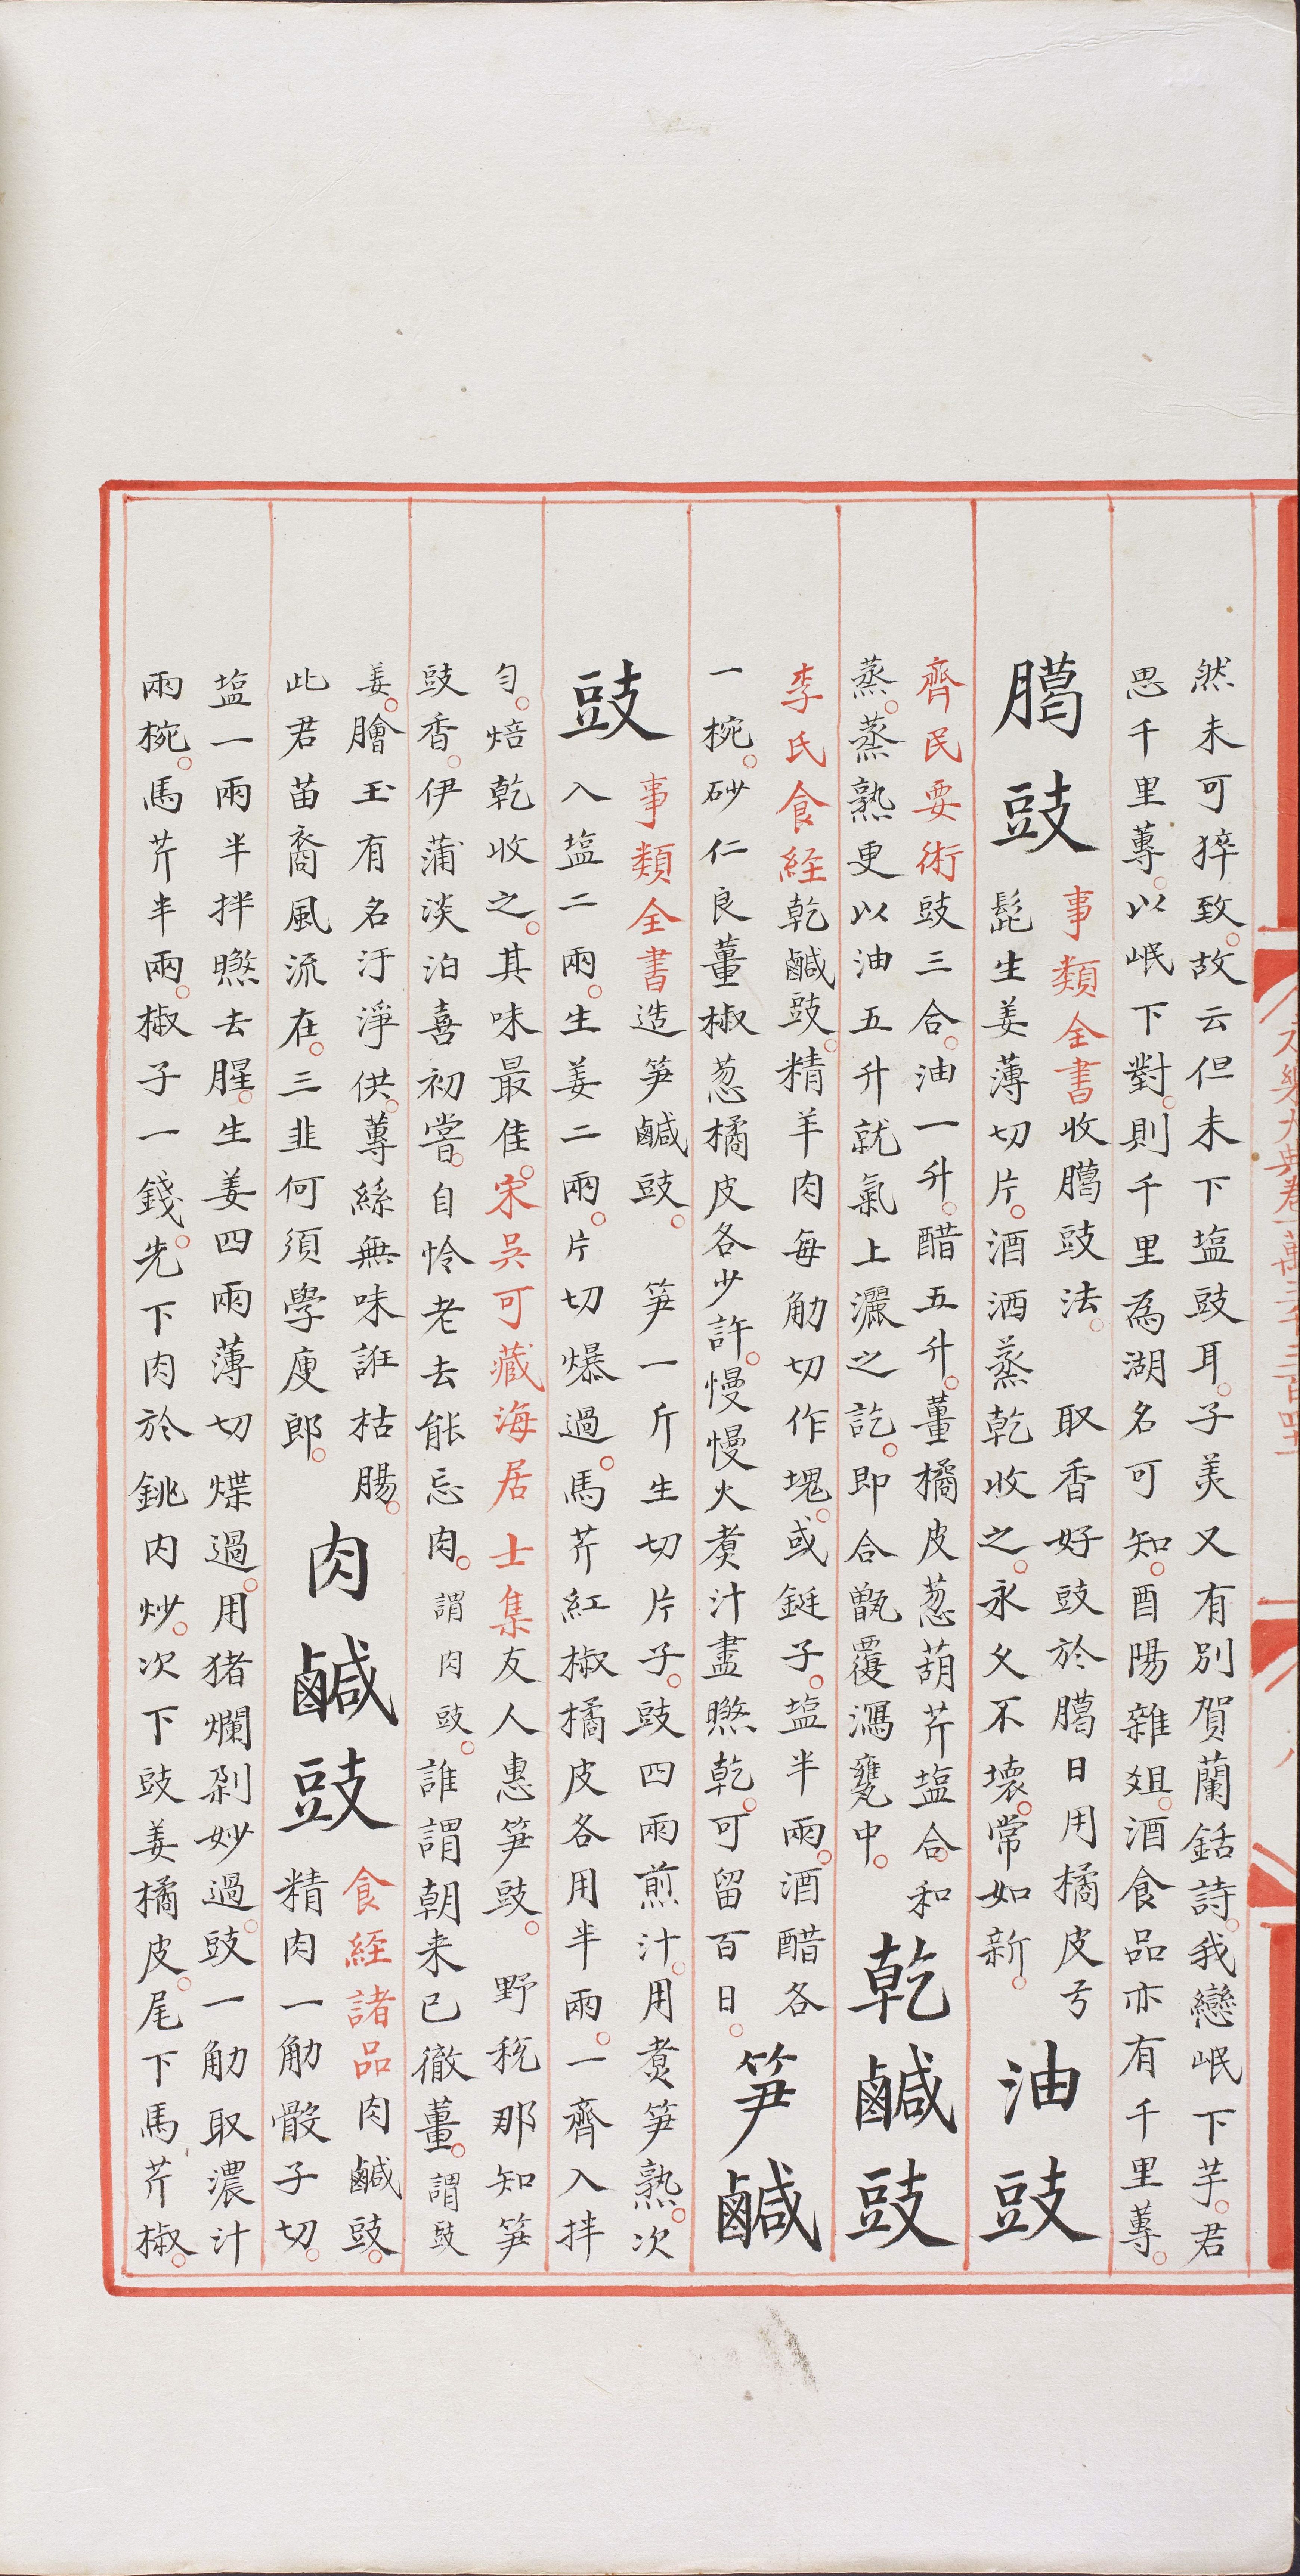 永樂大典卷一萬
然未可猝致。故云但未下塩豉耳。子美又有別賀蘭銛詩。我戀岷下芋。君
思千里蓴。以岷下對。則千里為湖名可知。酉陽雜俎。酒食品亦有千里蓴。
臈豉
事類全書收臈豉法。 取香好豉於臈日用橘皮兮
髭生姜薄切片。酒洒蒸乾收之。永久不壞。常如新。
油豉
齊民要術豉三合。油一升。醋五升。薑橘皮葱葫芹塩合和
蒸。蒸熟更以油五升就氣上灑之訖。即合甑覆瀉甕中。
乾鹹豉
李氏食経乾鹹豉。精羊肉每觔切作塊。或鋌子。塩半兩。酒醋各
一椀。砂仁良薑椒葱橘皮各少許。慢慢火煑汁盡㬠乾。可留百日。
笋鹹
豉
事類全書造笋鹹豉。 笋一斤生切片子。豉四兩煎汁。用煑笋熟。次
入塩二兩。生姜二兩。片切爆過。馬芹紅椒橘皮各用半兩。一齊入拌
匀。焙乾收之。其味最佳。宋吳可藏海居士集友人惠笋豉。 野秔那知笋
豉香。伊蒲淡泊喜初嘗。自怜老去能忘肉。謂肉豉。誰謂朝来已徹薑。謂豉
姜。膾玉有名汙淨供。蓴絲無味誑枯腸。
此君苗裔風流在。三韭何須學庾郎。
肉鹹豉
食経諸品肉鹹豉。
精肉一觔骰子切。
塩一兩半拌㬠去腥。生姜四兩薄切煠過。用猪爛剁妙過。豉一觔取濃汁
兩椀。馬芹半兩。椒子一錢。先下肉於銚内炒。次下豉姜橘皮。尾下馬芹椒。